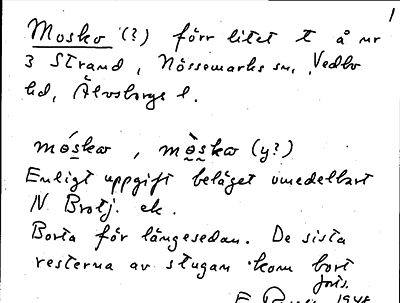 1
Mosko (?) förr litet t å nr
3 Strand, Nössemarks sn, Vedbo
hd, Älvsborgs l.
móskω, mòskω (y?)
Enligt uppgift beläget omedelbart
N. Brotj. ek.
Borta för längesedan. De sista
resterna av stugan kom bort
förs.
1948